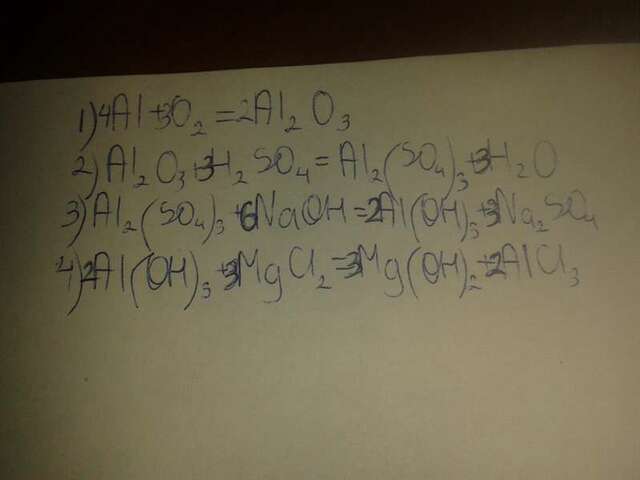 1) 4Al+3O₂ =2Al₂O₃
2) Al₂O₃+3H₂SO₄=Al₂(SO₄)₃+3H₂O
3) Al₂(SO₄)₃+6NaOH=2Al(OH)₃+3Na₂SO₄
4) 2Al(OH)₃+3MgCl₂=3Mg(OH)₂+2AlCl₃